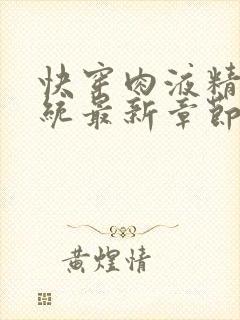 快穿肉液精
统最新章節
黄煌情